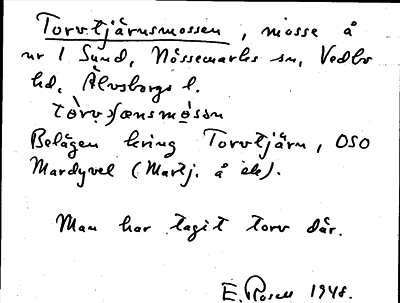 Torvtjärnsmossen, mosse å
nr 1 Sund, Nössemarks sn, Vedbo
hd, Älvsborgs l.
Belägen kring Torvtjärn, OSO
Mardyvel (Martj. å ek).
Man har tagit torv där.
E. Rosell 1948.